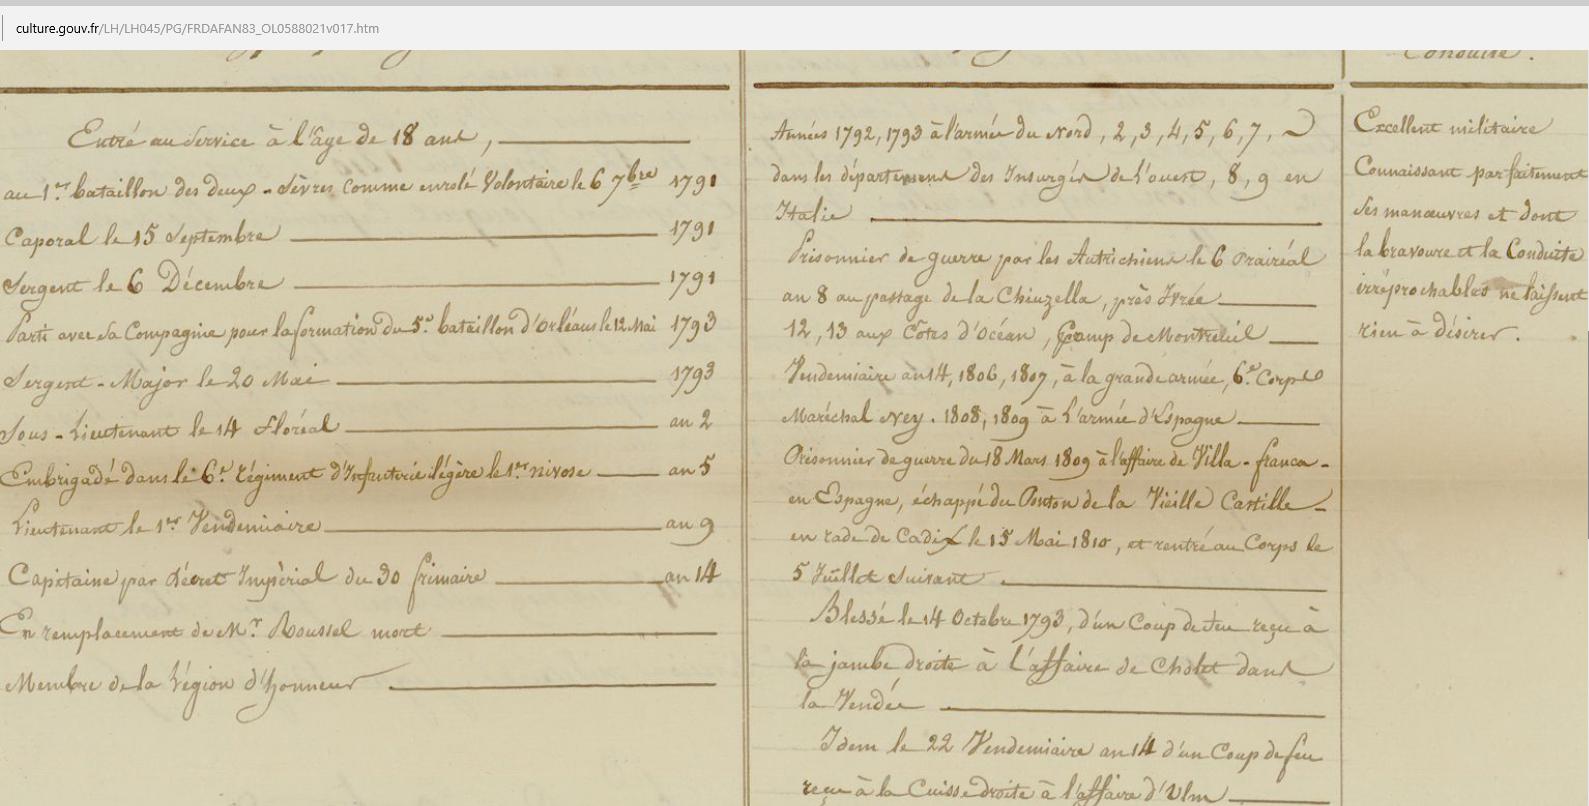 culture.gouv.fr/LH/LH045/PG/FRDAFAN83_OL0588021v017.htm
Conduite.
Entré au Service à l'âge de 18 ans,
au 1er bataillon des deux-Sèvres comme enrolé Volontaire le 6 7bre 1791
Caporal le 15 Septembre 1791
Sergent le 6 Décembre 1791
Parti avec sa Compagnie pour la formation du 5e bataillon d'Orléans le 12 Mai 1793
Sergent-Major le 20 Mai 1793
Sous-Lieutenant le 14 floréal an 2
Embrigadé dans le 6e régiment d'Infanterie légère le 1er nivose an 5
Lieutenant le 1er Vendemiaire an 9
Capitaine par décret Impérial du 30 frimaire an 14
En remplacement de Mr Roussel mort
Membre de la Légion d'honneur
Années 1792, 1793 à l'armée du Nord, 2, 3, 4, 5, 6, 7,
dans les départemens des Insurgés de l'ouest, 8, 9 en
Italie
Prisonnier de guerre par les Autrichiens le 6 Prairéal
an 8 au passage de la Chiuzella, près Ivrée
12, 13 aux Côtes d'Océan, Camp de Montreuil
Vendemiaire an 14, 1806, 1807, à la grande armée, 6e Corps
Maréchal Ney. 1808, 1809 à l'armée d'Espagne
Prisonnier de guerre du 18 Mars 1809 à l'affaire de Villa-franca-
en Espagne, échappé du Ponton de la Vieille Castille-
en rade de Cadix le 15 Mai 1810, et rentré au Corps le
5 Juillet suivant
Blessé le 14 Octobre 1793, d'un Coup de feu reçu à
la jambe droite à l'affaire de Cholet dans
la Vendée
Idem le 22 Vendemiaire an 14 d'un Coup de feu
reçu à la Cuisse droite à l'affaire d'Ulm
Excellent militaire
Connaissant parfaitement
ses manœuvres et dont
la bravoure et la Conduite
irréprochables ne laissent
rien à désirer.